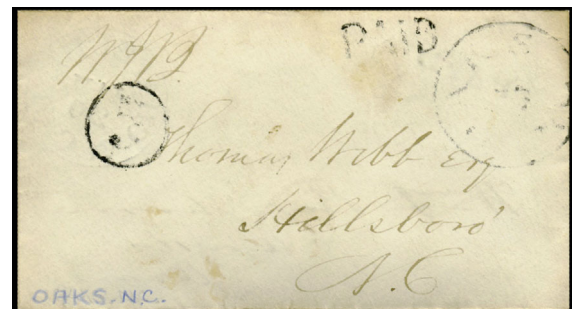 PAID
W.J.B.
5
Thomas Webb Esq
Hillsboro
N.C
OAKS. N.C.